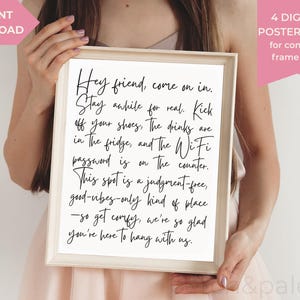 4 DIG
POSTER
for con
frame
Hey friend, come on in.
Stay awhile for real. Kick
off your shoes, the drinks are
in the fridge, and the WiFi
password is on the counter.
This spot is a judgment-free,
good-vibes-only kind of place
—so get comfy, we're so glad
you're here to hang with us.